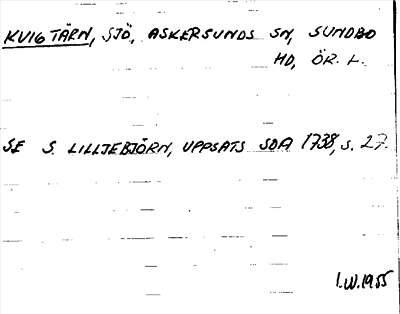 KVIGTÄRN, SJÖ, ASKERSUNDS SN, SUNDBO
HD, ÖR. L.
SE S. LILLJEBJÖRN, UPPSATS SOA 1738, s. 27.
I.W. 1955